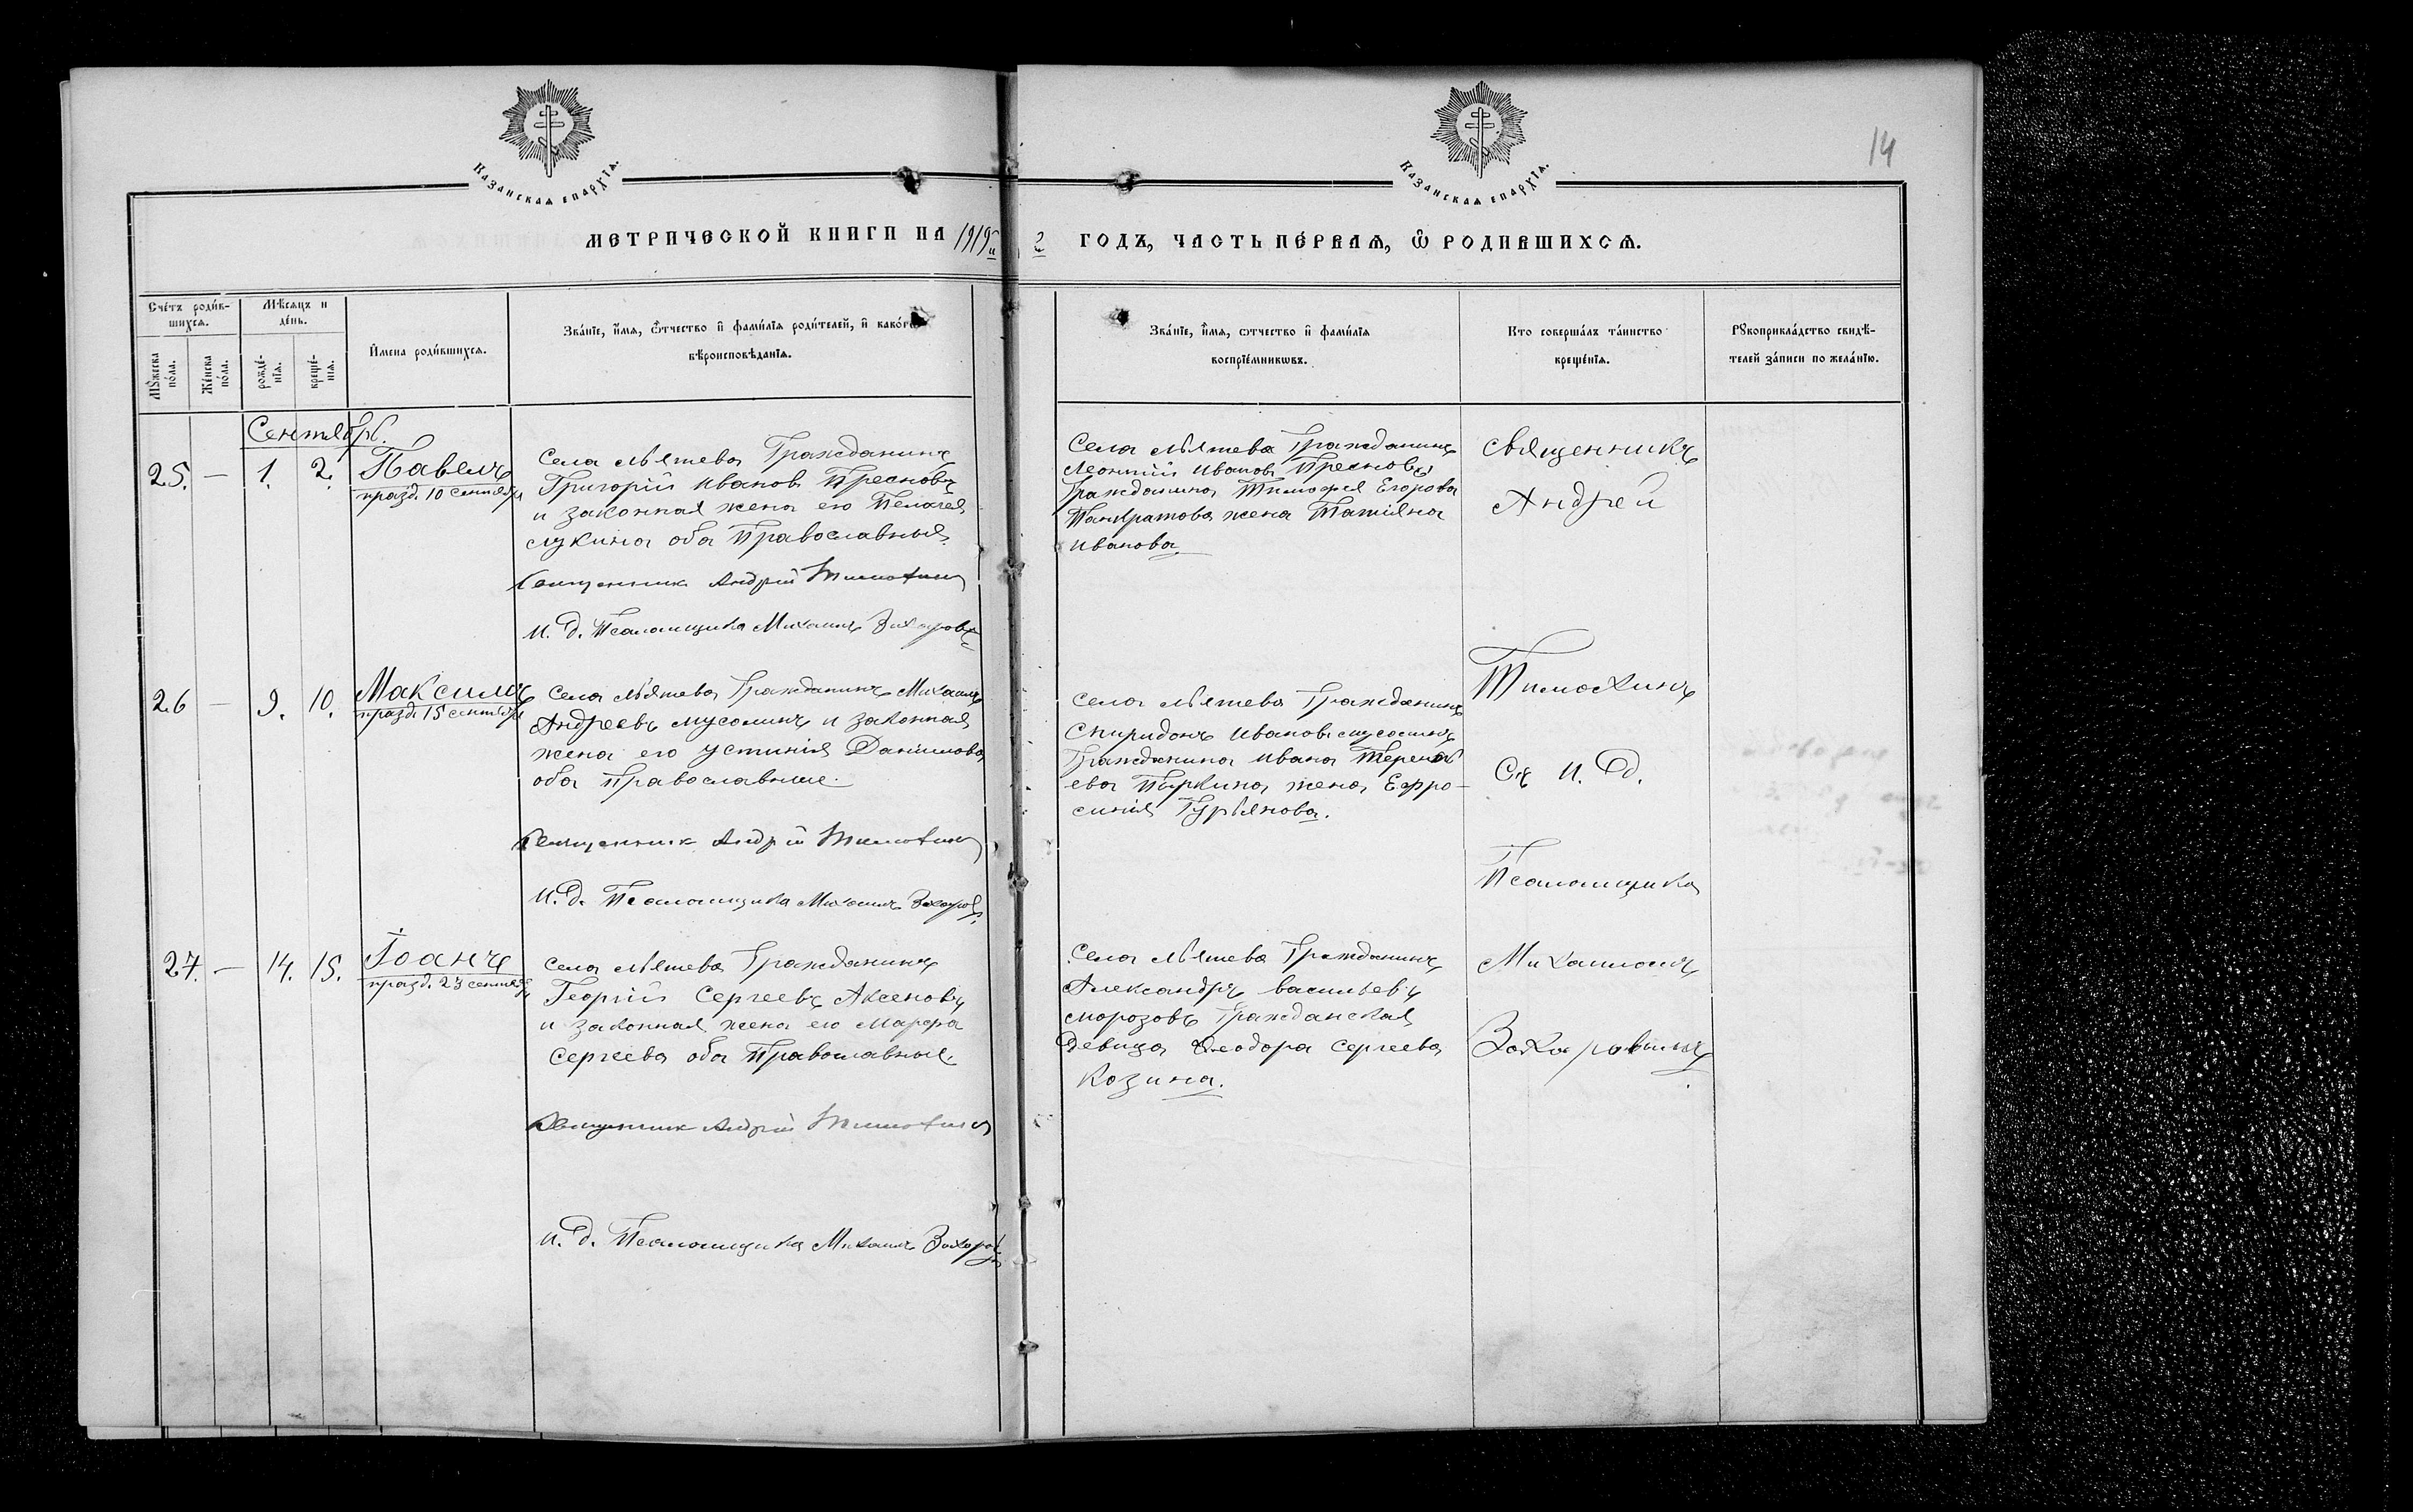 14
Казанскаѧ епархїѧ.
Казанскаѧ епархїѧ.
МЕТРИЧЕСКОЙ КНИГИ НА 1919й
2 ГОДЪ, ЧАСТЬ ПЕ́РВАѦ, Ѡ РОДИВШИХСѦ.
Сче́тъ роди́в-
шихсѧ.
Мꙋ́жеска по́ла.
Же́нска по́ла.
Мѣ́сѧцъ и
де́нь.
рожде́-
нїѧ.
креще́-
нїѧ.
И҆мена роди́вшихсѧ.
Зва́нїе, и҆́мѧ, ѻ҆́тчество и҆ фами́лїѧ роди́телей, и҆ како́гѡ
вѣроисповѣ́данїѧ.
Зва́нїе, и҆́мѧ, ѻтчество и҆ фами́лїѧ
воспрїе́мникѡвъ.
Кто соверша́лъ та́инство
креще́нїѧ.
Рꙋкоприкла́дство свидѣ́-
телей за́писи по жела́нїю.
Сентябрь.
25. — 1. 2. Павелъ
празд. 10 сентября
Села Мѣтева Гражданинъ
Григорій Ивановъ Пресновъ
и законная жена его Пелагея
Лукина оба Православныя.
Священникъ Андрей Тимохинъ
И. д. Псаломщика Михаилъ Захаровъ
Села Мѣтева Гражданинъ
Леонтій Ивановъ Пресновъ
Гражданина Тимофея Егорова
Панкратова жена Татіяна
Иванова
Священникъ
Андрей
Тимохинъ
Съ И. д.
Псаломщика
Михаиломъ
Захаровымъ
26 — 9. 10. Максимъ
празд. 15 сентября
Села Мѣтева Гражданинъ Михаилъ
Андреевъ Мусолинъ и законная
жена его Устинія Данилова
оба Православные.
Священникъ Андрей Тимохинъ
И. д. Псаломщика Михаилъ Захаровъ
Села Мѣтева Гражданинъ
Спиридонъ Ивановъ Мусолинъ
Гражданина Ивана Терентѣ
ева Пыркина жена Ефро-
синія Гурьянова.
27. — 14. 15. Іоаннъ
празд. 23 сентяб
Села Мѣтева Гражданинъ
Георгій Сергеевъ Аксеновъ
и законная жена его Марфа
Сергеева оба Православныя
Священникъ Андрей Тимохинъ
И. д. Псаломщика Михаилъ Захаровъ
Села Мѣтева Гражданинъ
Александръ Васильевъ
Морозовъ Гражданская
девица Феодора Сергеева
Козина.